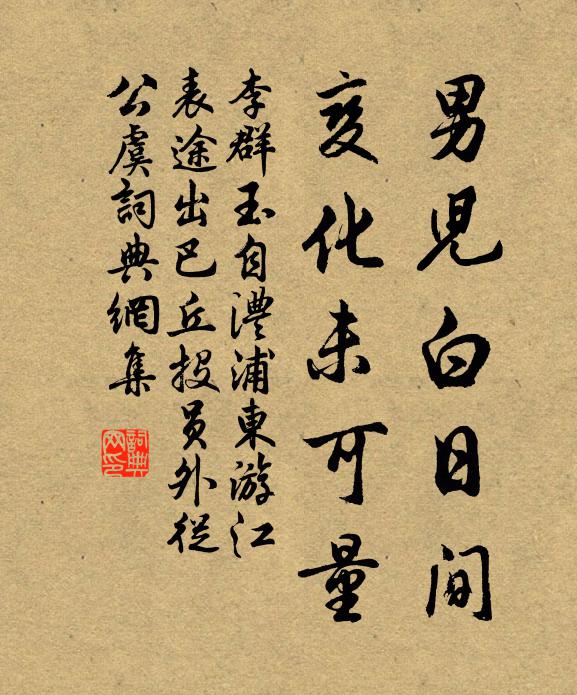 男児白日间
变化未可量
李群玉自澧浦東游江
表途出巴丘投员外従
公虞詞典網集
詞典网印